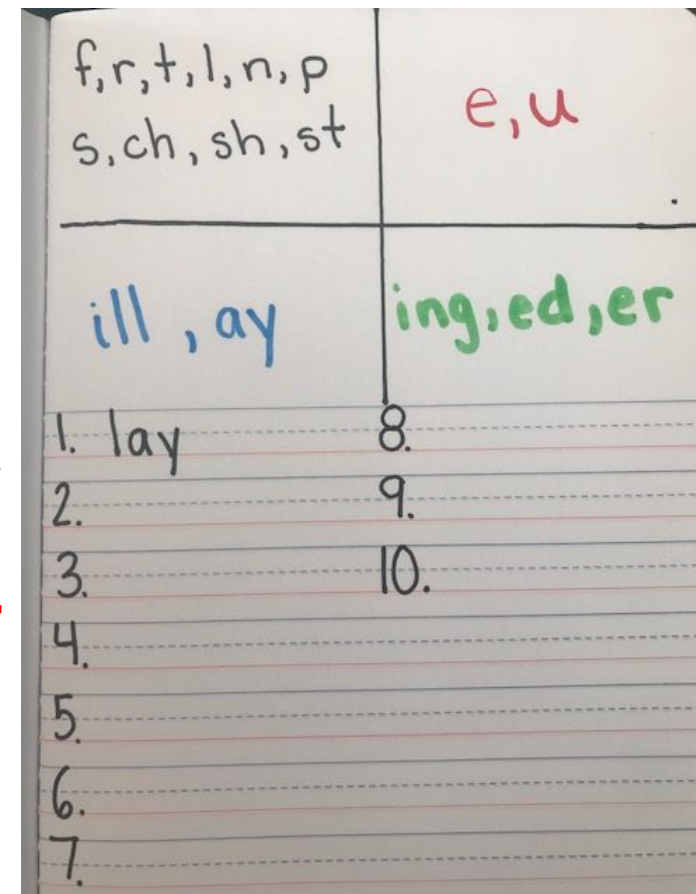 f,r,t,l,n,p
s,ch,sh,st
e,u
ill, ay
ing,ed,er
1. lay
2.
3.
4.
5.
6.
7.
8.
9.
10.